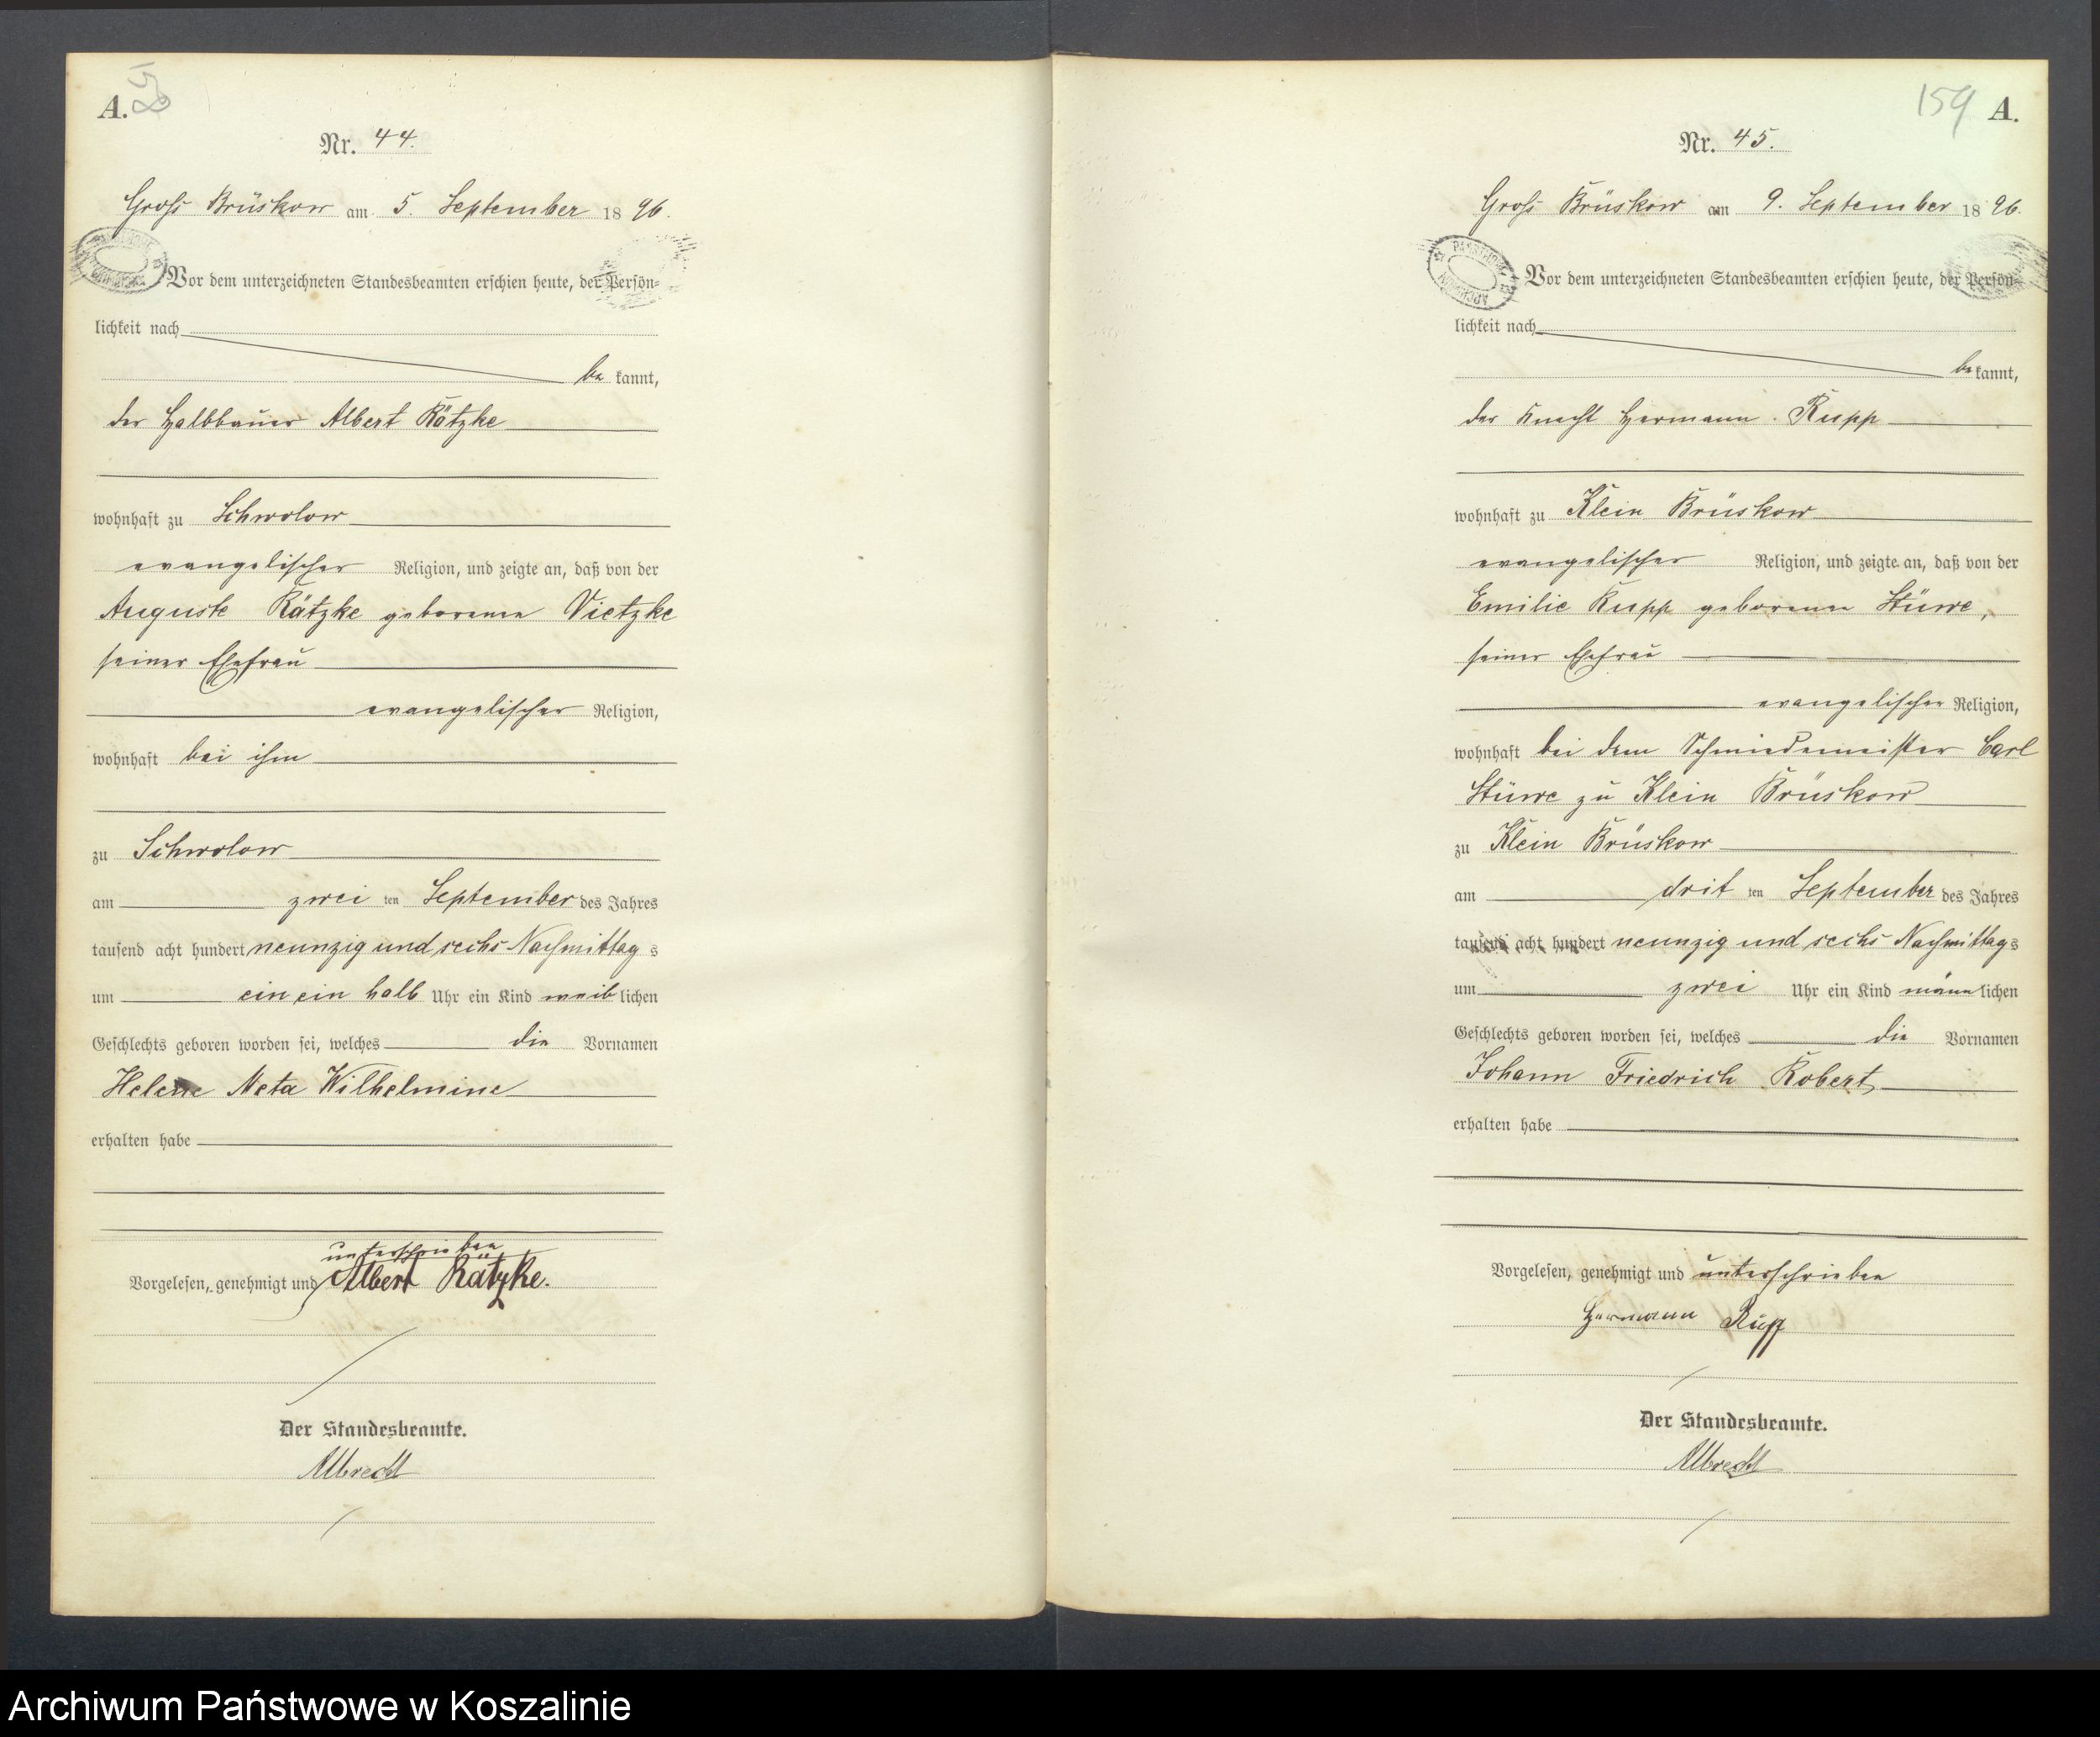 A.
Nr. 44.
Groß Brüskow am 5. September 1896.
Vor dem unterzeichneten Standesbeamten erschien heute, der Persön-
lichkeit nach
be kannt,
der Halbbauer Albert Rätzke
wohnhaft zu Schwolow
evangelischer Religion, und zeigte an, daß von der
Auguste Rätzke geborenen Vietzke
seiner Ehefrau
evangelischer Religion,
wohnhaft bei ihm
zu Schwolow
am zwei ten September des Jahres
tausend acht hundert neunzig und sechs Nachmittag s
um ein ein halb Uhr ein Kind weib lichen
Geschlechts geboren worden sei, welches die Vornamen
Helene Meta Wilhelmine
erhalten habe
unterschrieben
Vorgelesen, genehmigt und Albert Rätzke.
Der Standesbeamte.
Albrecht
159 A.
Nr. 45.
Groß Brüskow am 9. September 1896.
Vor dem unterzeichneten Standesbeamten erschien heute, der Persön-
lichkeit nach
be kannt,
der Knecht Hermann Rupp
wohnhaft zu Klein Brüskow
evangelischer Religion, und zeigte an, daß von der
Emilie Rupp geborenen Stüwe,
seiner Ehefrau
evangelischer Religion,
wohnhaft bei dem Schmiedemeister Carl
Stüwe zu Klein Brüskow
zu Klein Brüskow
am drit ten September des Jahres
tausend acht hundert neunzig und sechs Nachmittag s
um zwei Uhr ein Kind männ lichen
Geschlechts geboren worden sei, welches die Vornamen
Johann Friedrich Robert
erhalten habe
Vorgelesen, genehmigt und unterschrieben
Hermann Rupp
Der Standesbeamte.
Albrecht
Archiwum Państwowe w Koszalinie